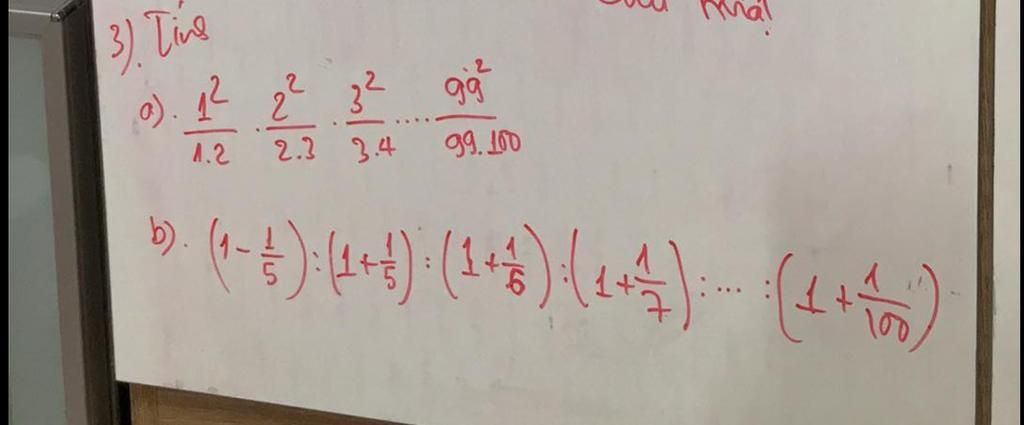 3). Tính
a). 1²/1.2 . 2²/2.3 . 3²/3.4 .... 99²/99.100
b). (1-1/5):(1+1/5):(1+1/6):(1+1/7):...:(1+1/100)